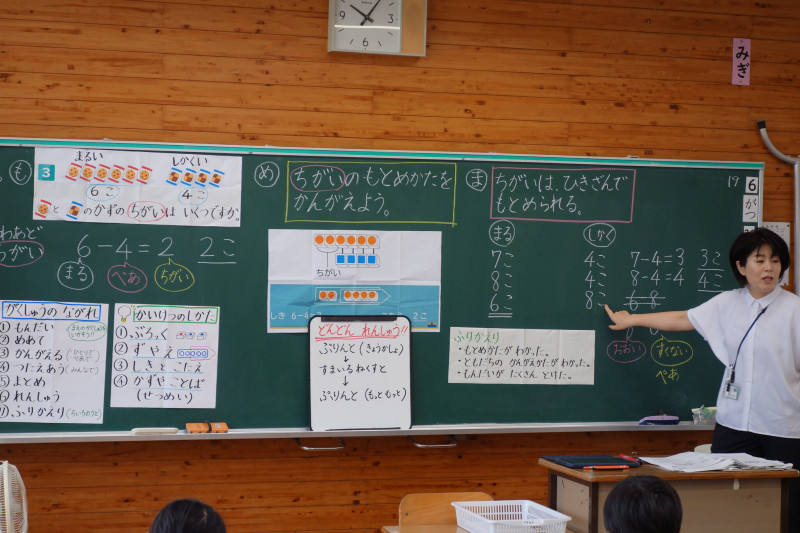 みぎ
も
3
まるい
しかくい
6こ
4こ
と のかずの ちがいは いくつですか。
6-4=2 2こ
まる
ぺあ
ちがい
め
ちがいのもとめかたを
かんがえよう。
ちがい
しき 6-4=2
2こ
ま
ちがいは、ひきざんで
もとめられる。
まる
しかく
7こ 4こ 7-4=3 3こ
8こ 4こ 8-4=4 4こ
6こ 8こ 6-8
おおい
すくない
ぺあ
19
6
がつ
がくしゅうの ながれ
① もんだい
② めあて
③ かんがえる
④ つたえあう(みんなで)
⑤ まとめ
⑥ れんしゅう
⑦ ふりかえり
かいけつのしかた
① ぶろっく
② ずやえ
③ しきと こたえ
④ かずや ことば
(せつめい)
どんどん れんしゅう!!
ぷりんと(きょうかしょ)
↓
すまいるねくすと
↓
ぷりんと(もっともっと)
ふりかえり
・もとめかたが わかった。
・ともだちの かんがえかたが わかった。
・もんだいが たくさん とけた。